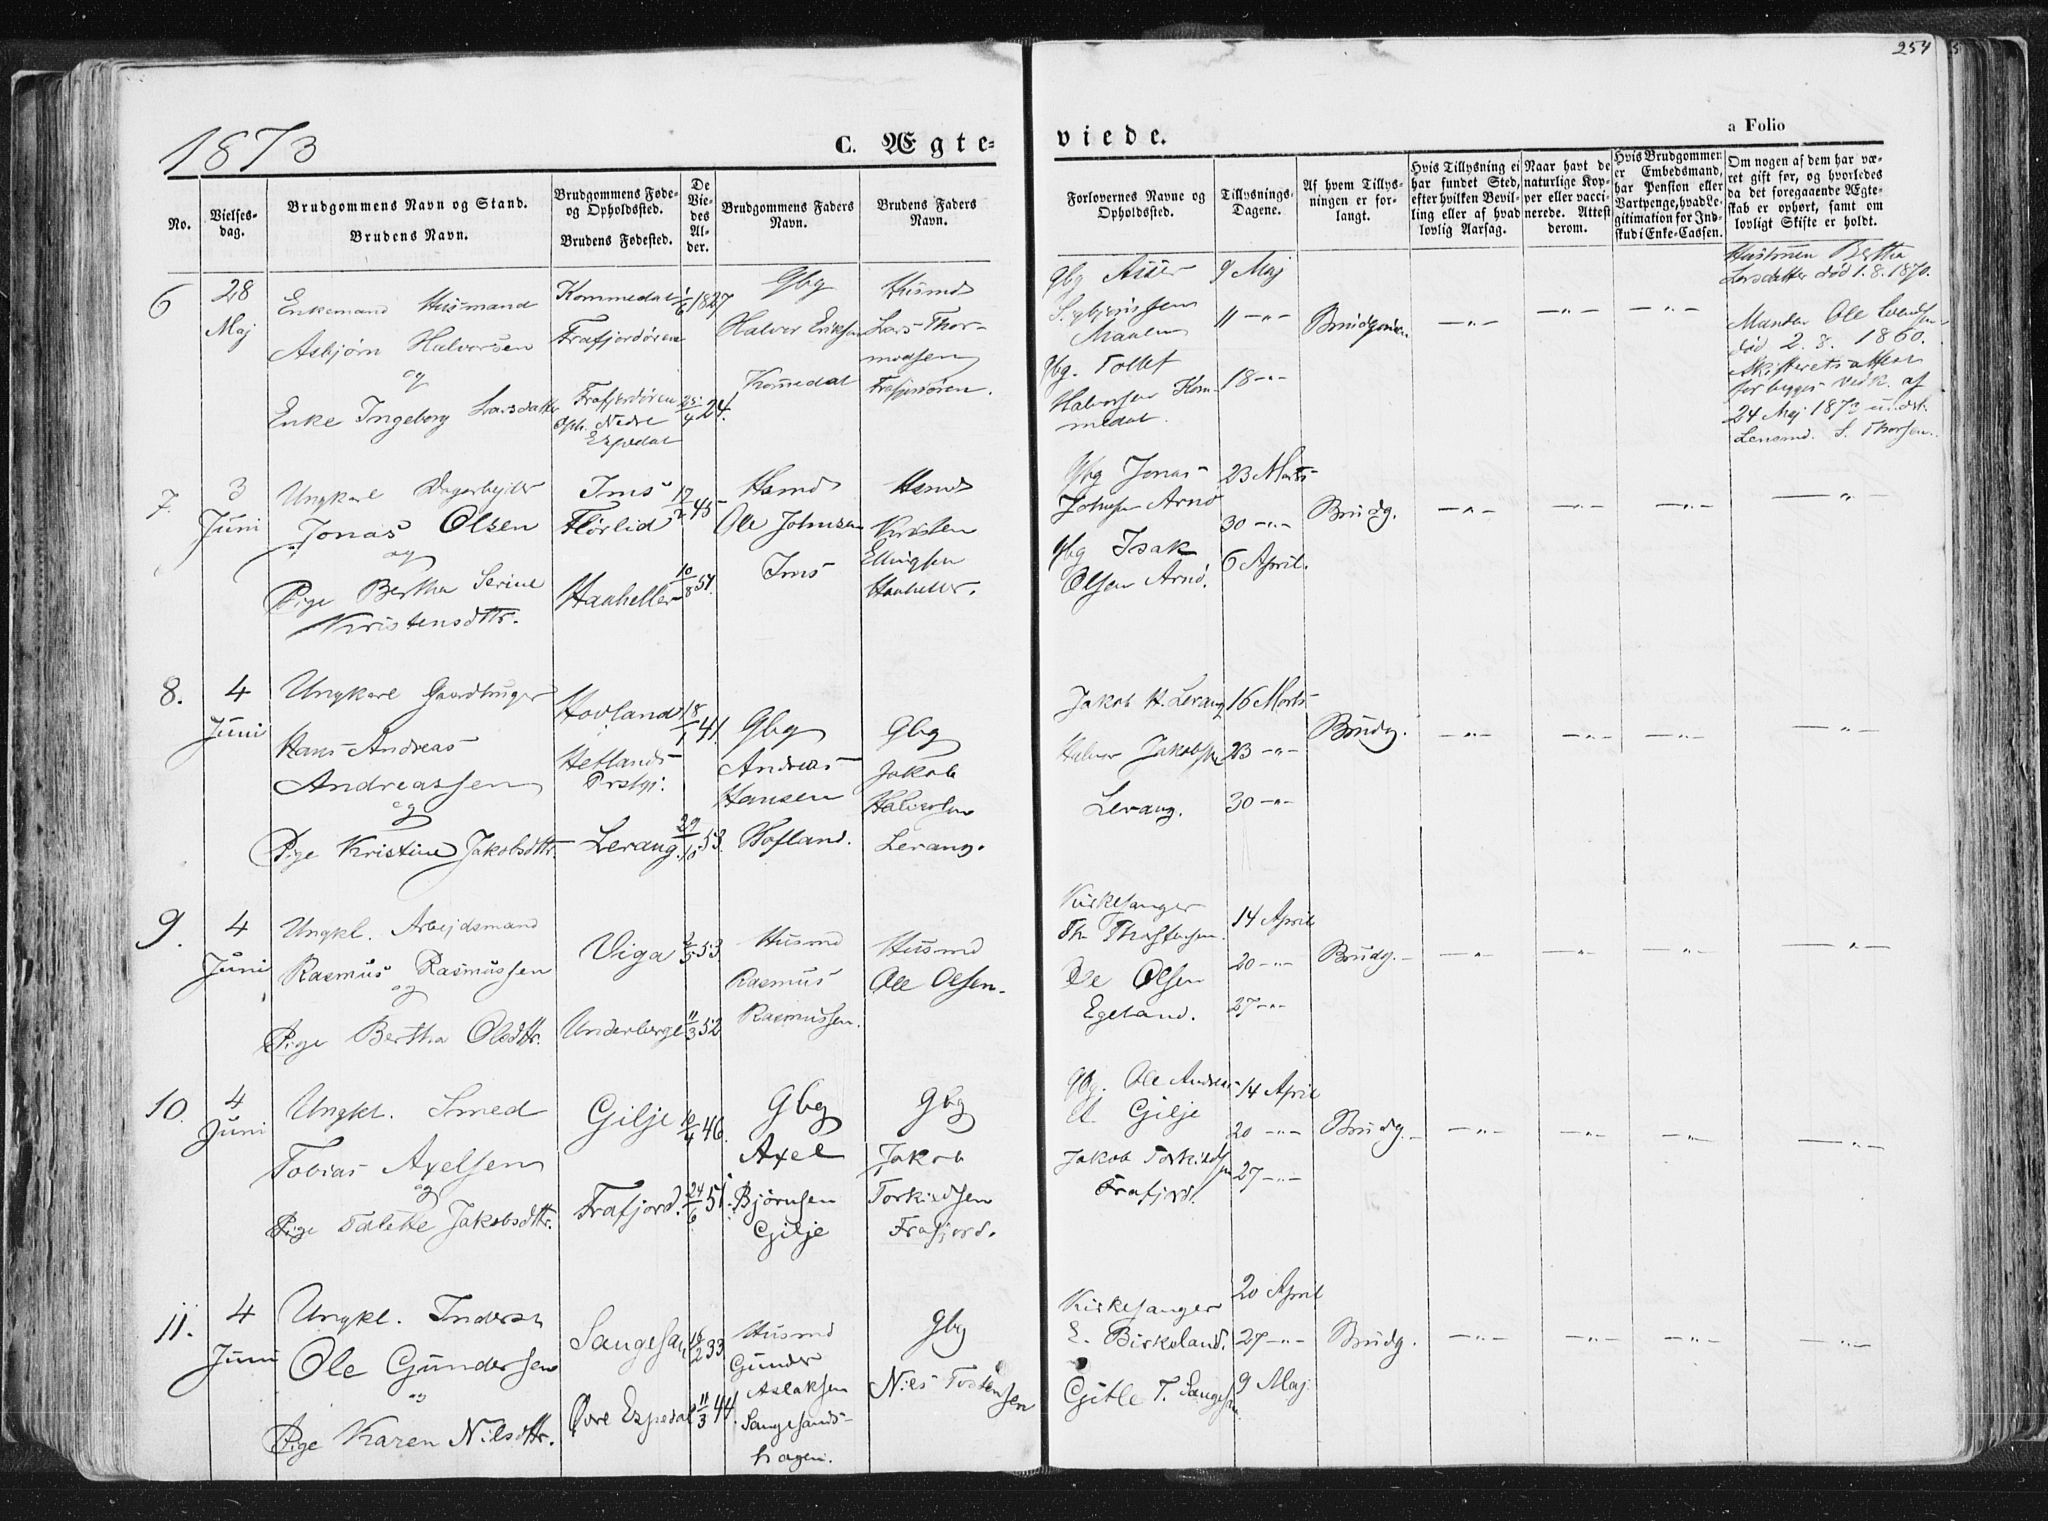 254
1873
C. Ægte-
viede.
a Folio
No.
Vielses-
dag.
Brudgommens Navn og Stand.
Brudens Navn.
Brudgommens Føde-
og Opholdssted.
Brudens Fødested.
De
Vie-
des
Al-
der.
Brudgommens Faders
Navn.
Brudens Faders
Navn.
Forlovernes Navne og
Opholdssted.
Tillysnings-
Dagene.
Af hvem Tillys-
ningen er for-
langt.
Hvis Tillysning ei
har fundet Sted,
efter hvilken Bevil-
ling eller af hvad
lovlig Aarsag.
Naar havt de
naturlige Kop-
per eller vacci-
nerede. Attest
derom.
Hvis Brudgommen
er Embedsmand,
har Pension eller
Vartpenge, hvad Le-
gitimation for Ind-
skud i Enke-Cassen.
Om nogen af dem har væ-
ret gift før, og hvorledes
da det foregaaende Ægte-
skab er ophørt, samt om
lovligt Skifte er holdt.
6
28
Maj
Enkemand Husmand
Asbjørn Halvorsen
og
Enke Ingeborg Larsdatter
Kommedal
Frafjordøren
Frafjordøren
Oph. Nedre
Espedal
1/6 1827
25/4 24.
Gbg
Halvor Eriksen
Kommedal
Husmd
Lars Thor-
modsen
Frafjordøren.
Gbg Asser
Maalen
Gbg. Tollef
Halvorsen Kom-
medal
9 Maj
11 -"-
18 -"-
Brudgommen
-"-
-"-
-"-
Hustruen Bertha
Larsdatter død 1.8.1870.
Manden Ole
død 2. 8. 1860.
Skifterets attest
for begges vedk. af
24 Maj 1873 undst.
Lensmd. S. Thorsen.
7.
3
Juni
Ungkarl Dagarbejder
Jonas Olsen
og
Pige Bertha Serine
Kristensdttr.
Ims
Flørlid
Haaheller
17/2 45
10/8 51.
Hsmd
Ole Johnsen
Ims
Hsmd
Kristen
Ellingsen
Haaheller.
Gbg Jonas
Johnsen Arnø
Gbg Isak
Olsen Arnø.
23 Marts
30 -"-
6 April.
Brudg.
-"-
-"-
-"-
-"-
8.
4
Juni
Ungkarl Gaardbruger
Hans Andreas
Andreassen
og
Pige Kristine Jakobsdttr.
Hovland
Hetlands
Prstgj.
Lerang.
18/1 41.
29/10 53.
Gbg
Andreas
Hansen
Hofland.
Gbg
Jakob
Halvorsen
Lerang.
Jakob H. Lerang
Halvor Jakobsen
Lerang.
16 Marts
23 -"-
30 -"-
Brudg.
-"-
-"-
-"-
-"-
9.
4
Juni
Ungkl. Arbejdsmand
Rasmus Rasmussen
og
Pige Bertha Olsdttr.
Viga
Underberge
53
11/3 52
Husmd
Rasmus
Rasmussen.
Husmd
Ole Olsen.
Kirkesanger
Ole Olsen
Egeland.
14 April
20 -"-
27 -"-
Brudg.
-"-
-"-
-"-
-"-
10.
4
Juni
Ungkl. Smed
Tobias Axelsen
og
Pige Tolette Jakobsdttr.
Gilje
Frafjord.
46.
24/6 51.
Gbg
Axel
Bjørnsen
Gilje
Gbg
Jakob
Torkildsen
Frafjord.
Gbg. Ole Andreas
A. Gilje
Jakob Torkildsen
Frafjord.
14 April
20 -"-
27 -"-
Brudg.
-"-
-"-
-"-
-"-
11.
4
Juni
Ungkl. Inderst
Ole Gundersen
og
Pige Karen Nilsdttr.
Sangesan
Øvre Espedal
18/2 33
11/3 44.
Husmd
Gunder
Aslaksen
Sangesands-
hagen.
Gbg
Nils Tostensen
Kirkesanger
E. Birkeland.
Gitle T. Sangesan.
20 April
27 -"-
9 Maj
Brudg.
-"-
-"-
-"-
-"-